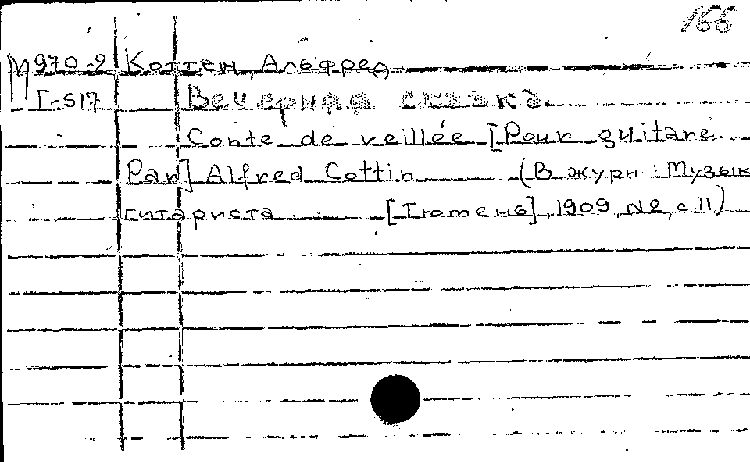 166
М970-2 Коттен, Альфред
I-517 Вечерняя сказка.
Conte de veillée [Pour guitare
Par] Alfred Cottin (В журн: Музыка
гитариста [Тюмень], 1909, №2, с 11)